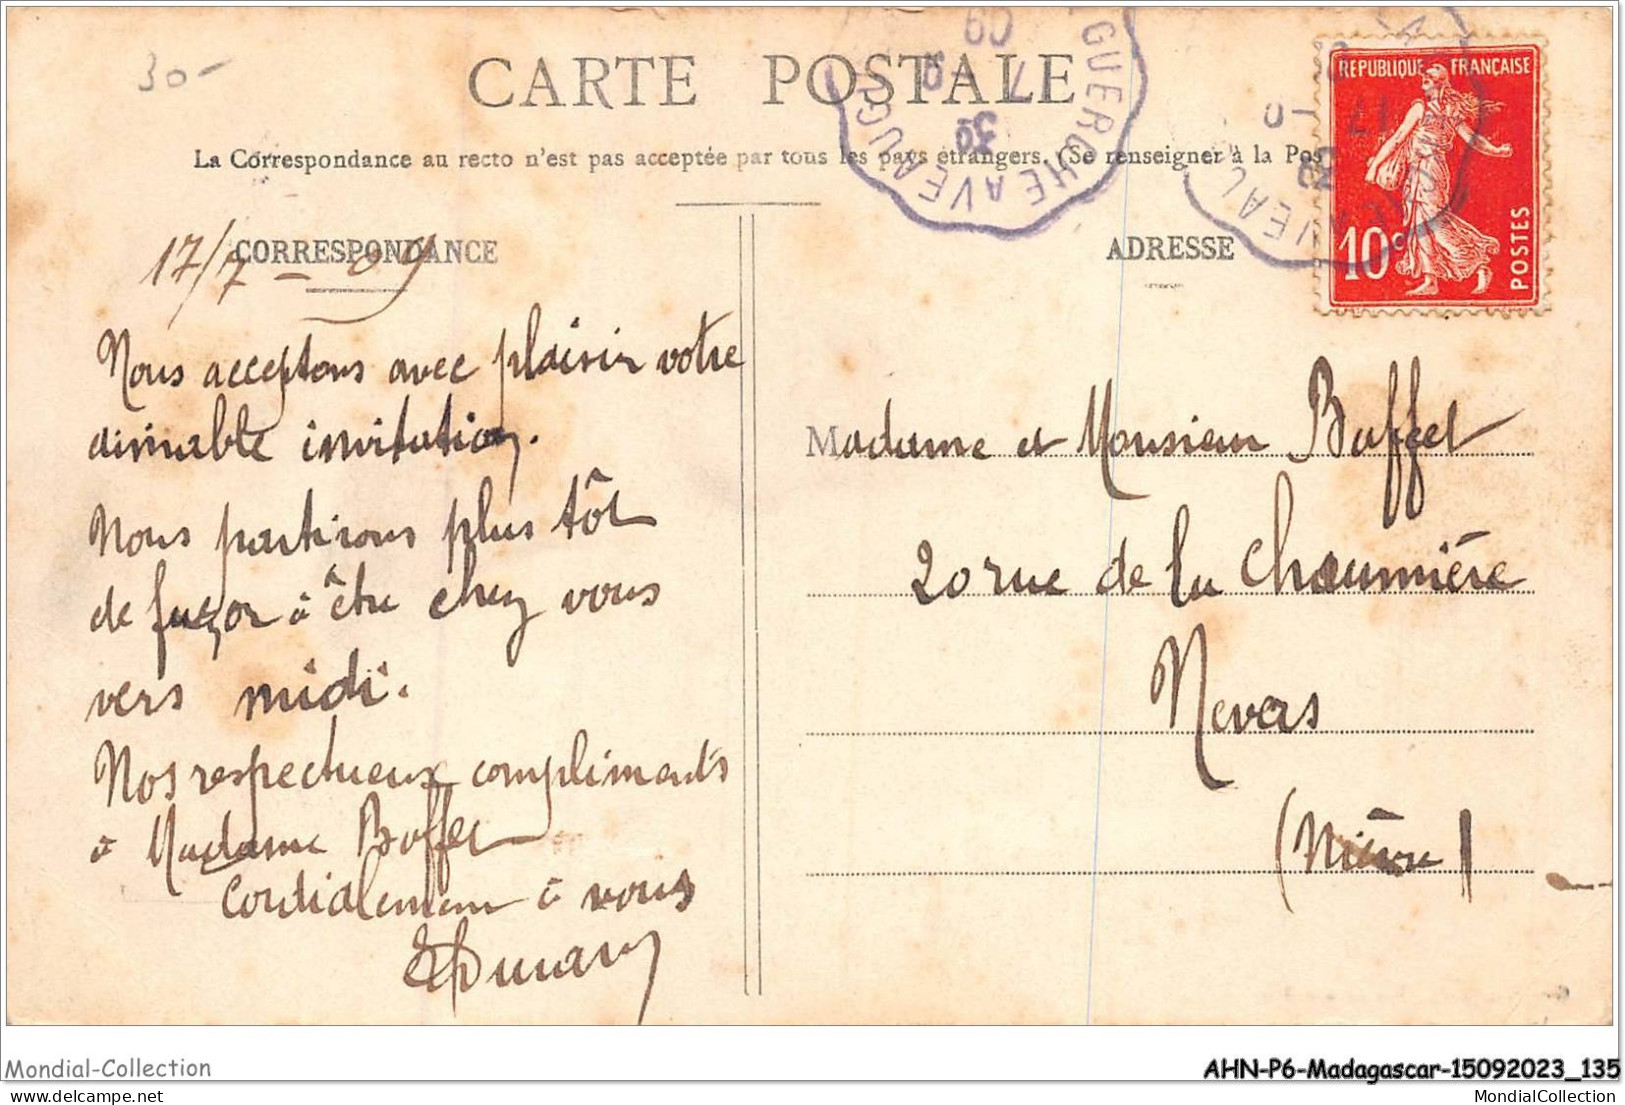 30-
CARTE POSTALE
La Correspondance au recto n'est pas acceptée par tous les pays étrangers. (Se renseigner à la Pos
GUERCHE A VEAUGUES
30
17
09
REPUBLIQUE FRANÇAISE
10c
POSTES
CORRESPONDANCE
17/7 - 09
Nous acceptons avec plaisir votre
aimable invitation.
Nous partirons plus tôt
de façon à être chez vous
vers midi.
Nos respectueux compliments
à Madame Buffet
Cordialement à vous
ADRESSE
Madame et Monsieur Buffet
20 rue de la Chaumière
Nevers
(Nièvre)
Mondial-Collection
AHN-P6-Madagascar-15092023_135
MondialCollection